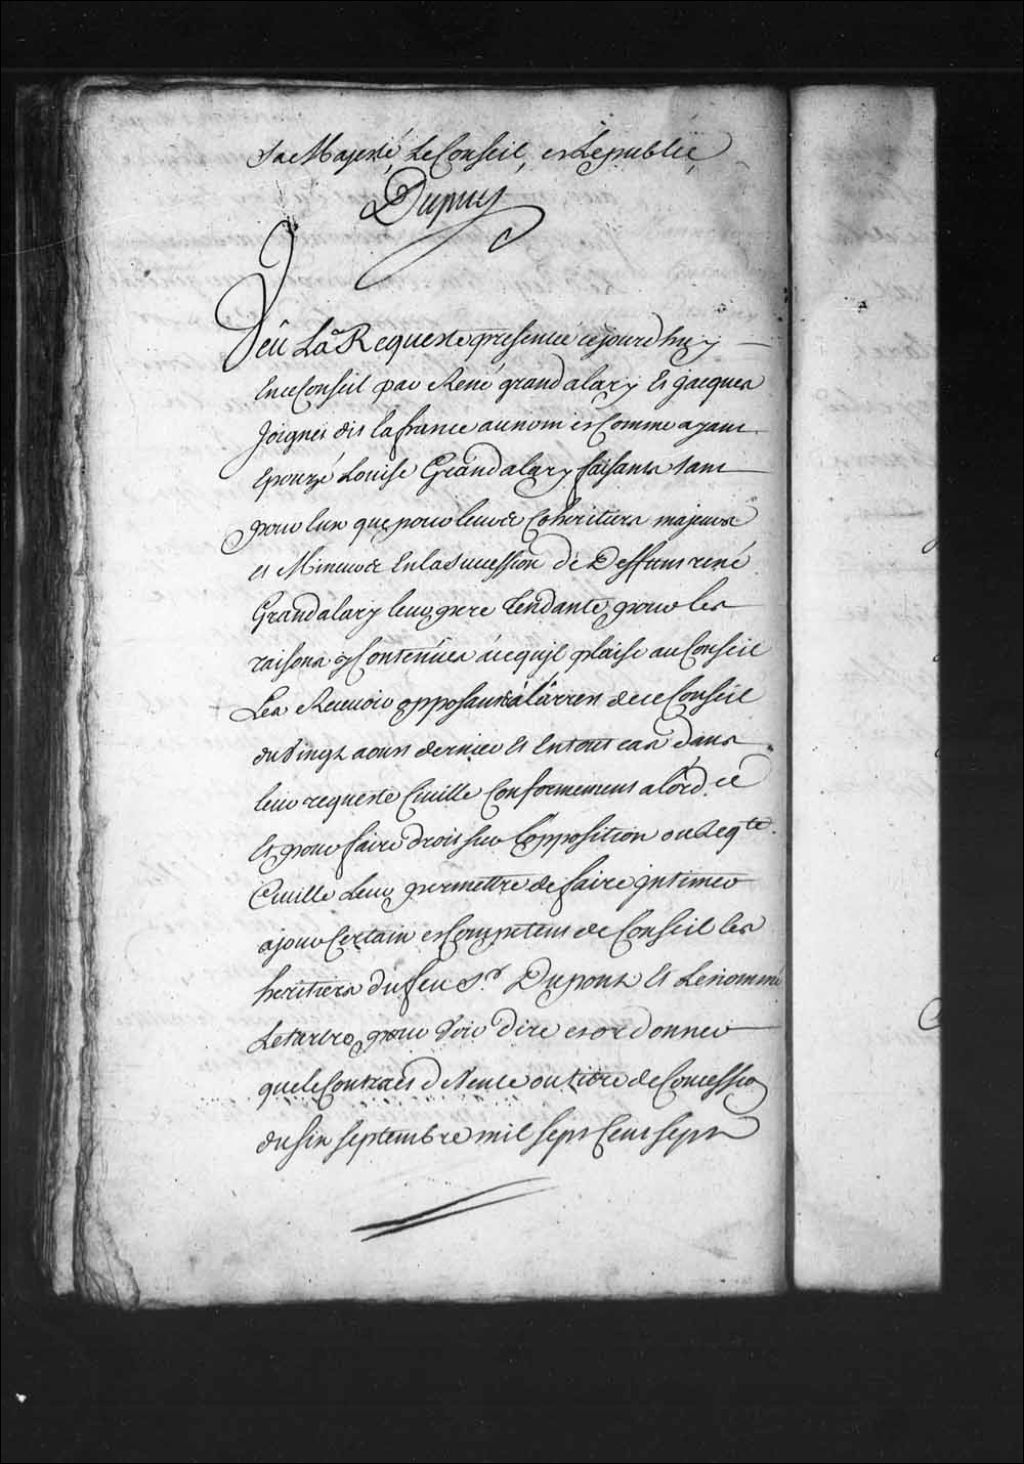 Sa Majesté, Le Conseil, et Le public
Dupuy
Veu La Requeste presentée cejourdhuy
En ce Conseil par René grandalary Et jacques
Joignet dit lafrance au nom et Comme ayant
Epouzé Louise Grandalary faisants tant
pour lun que pour leurs Coheritiers majeurs
et Mineurs En la Succession de Deffunt rené
Grandalary leur pere tendante, pour les
raisons y Contenües a ce qu'jl plaise au Conseil
Les Recevoir opposants à l'arrest de ce Conseil
du Vingt aoust dernier Et En tout cas dans
leur requeste Civille Conformement a lord.ce
Et pour faire droit sur l'opposition ou Reqte
Civille Leur permettre de faire jntimer
a jour Certain et Competent de Conseil les
heritiers du feu Sr. Dupont Et Le nommé
Letartre, pour Voir dire et ordonner
que le Contract de Vente ou titre de Concession
du Six septembre mil sept Cent sept